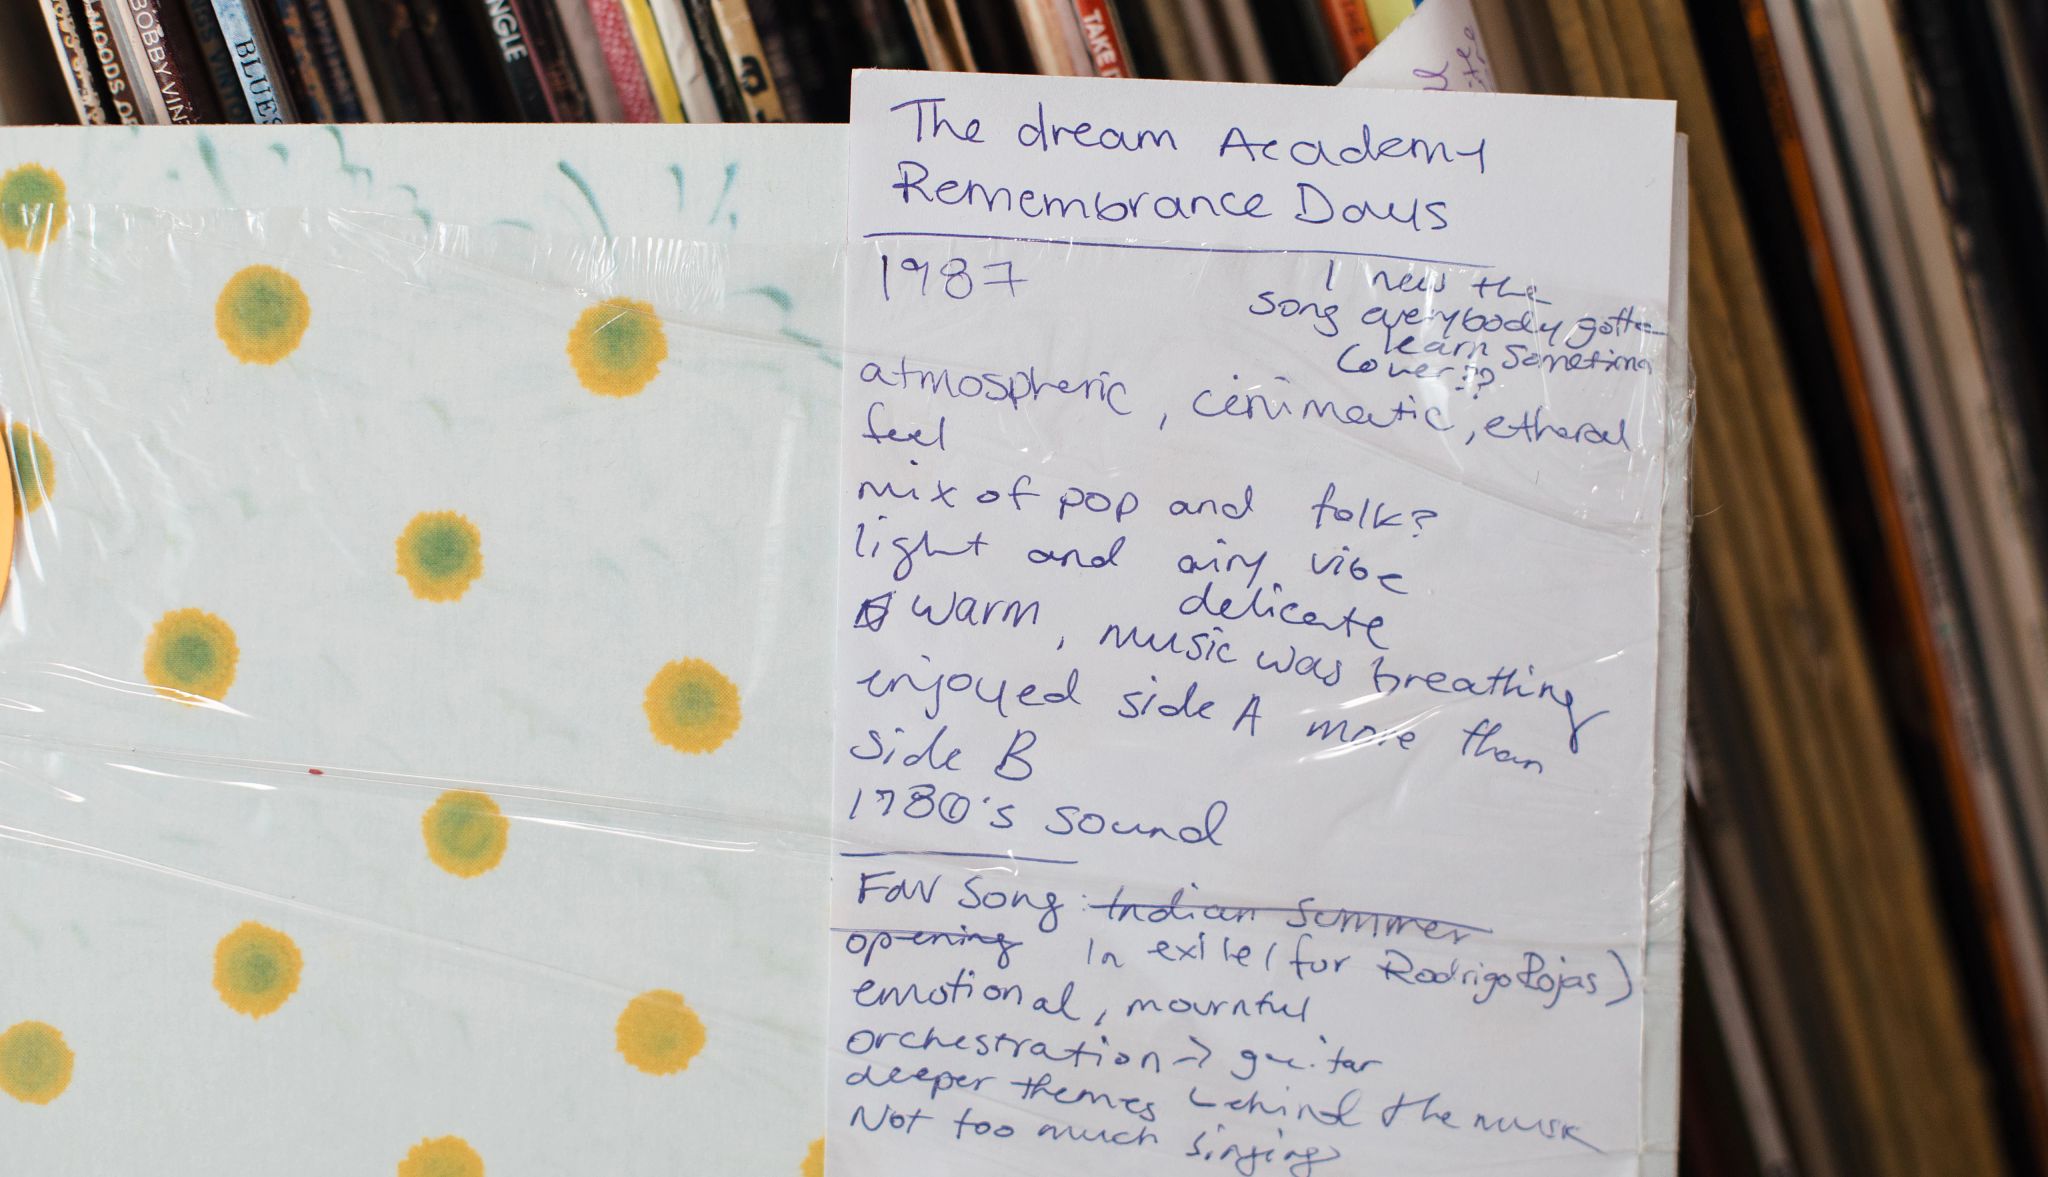 MOODS OF
BOBBY VIN
BLUES
NGLE
TAKE I
The dream Academy
Remembrance Days
1987
I new the
song everybody gotta
learn sometime
cover??
atmospheric, cinimatic, etheral
feel
mix of pop and folk?
light and airy vibe
delicate
warm, music was breathing
enjoyed side A more than
side B
1980's sound
Fav song: Indian summer
opening In exile (for Rodrigo Rojas)
emotional, mournful
orchestration -> guitar
deeper themes behind the musik
Not too much singing